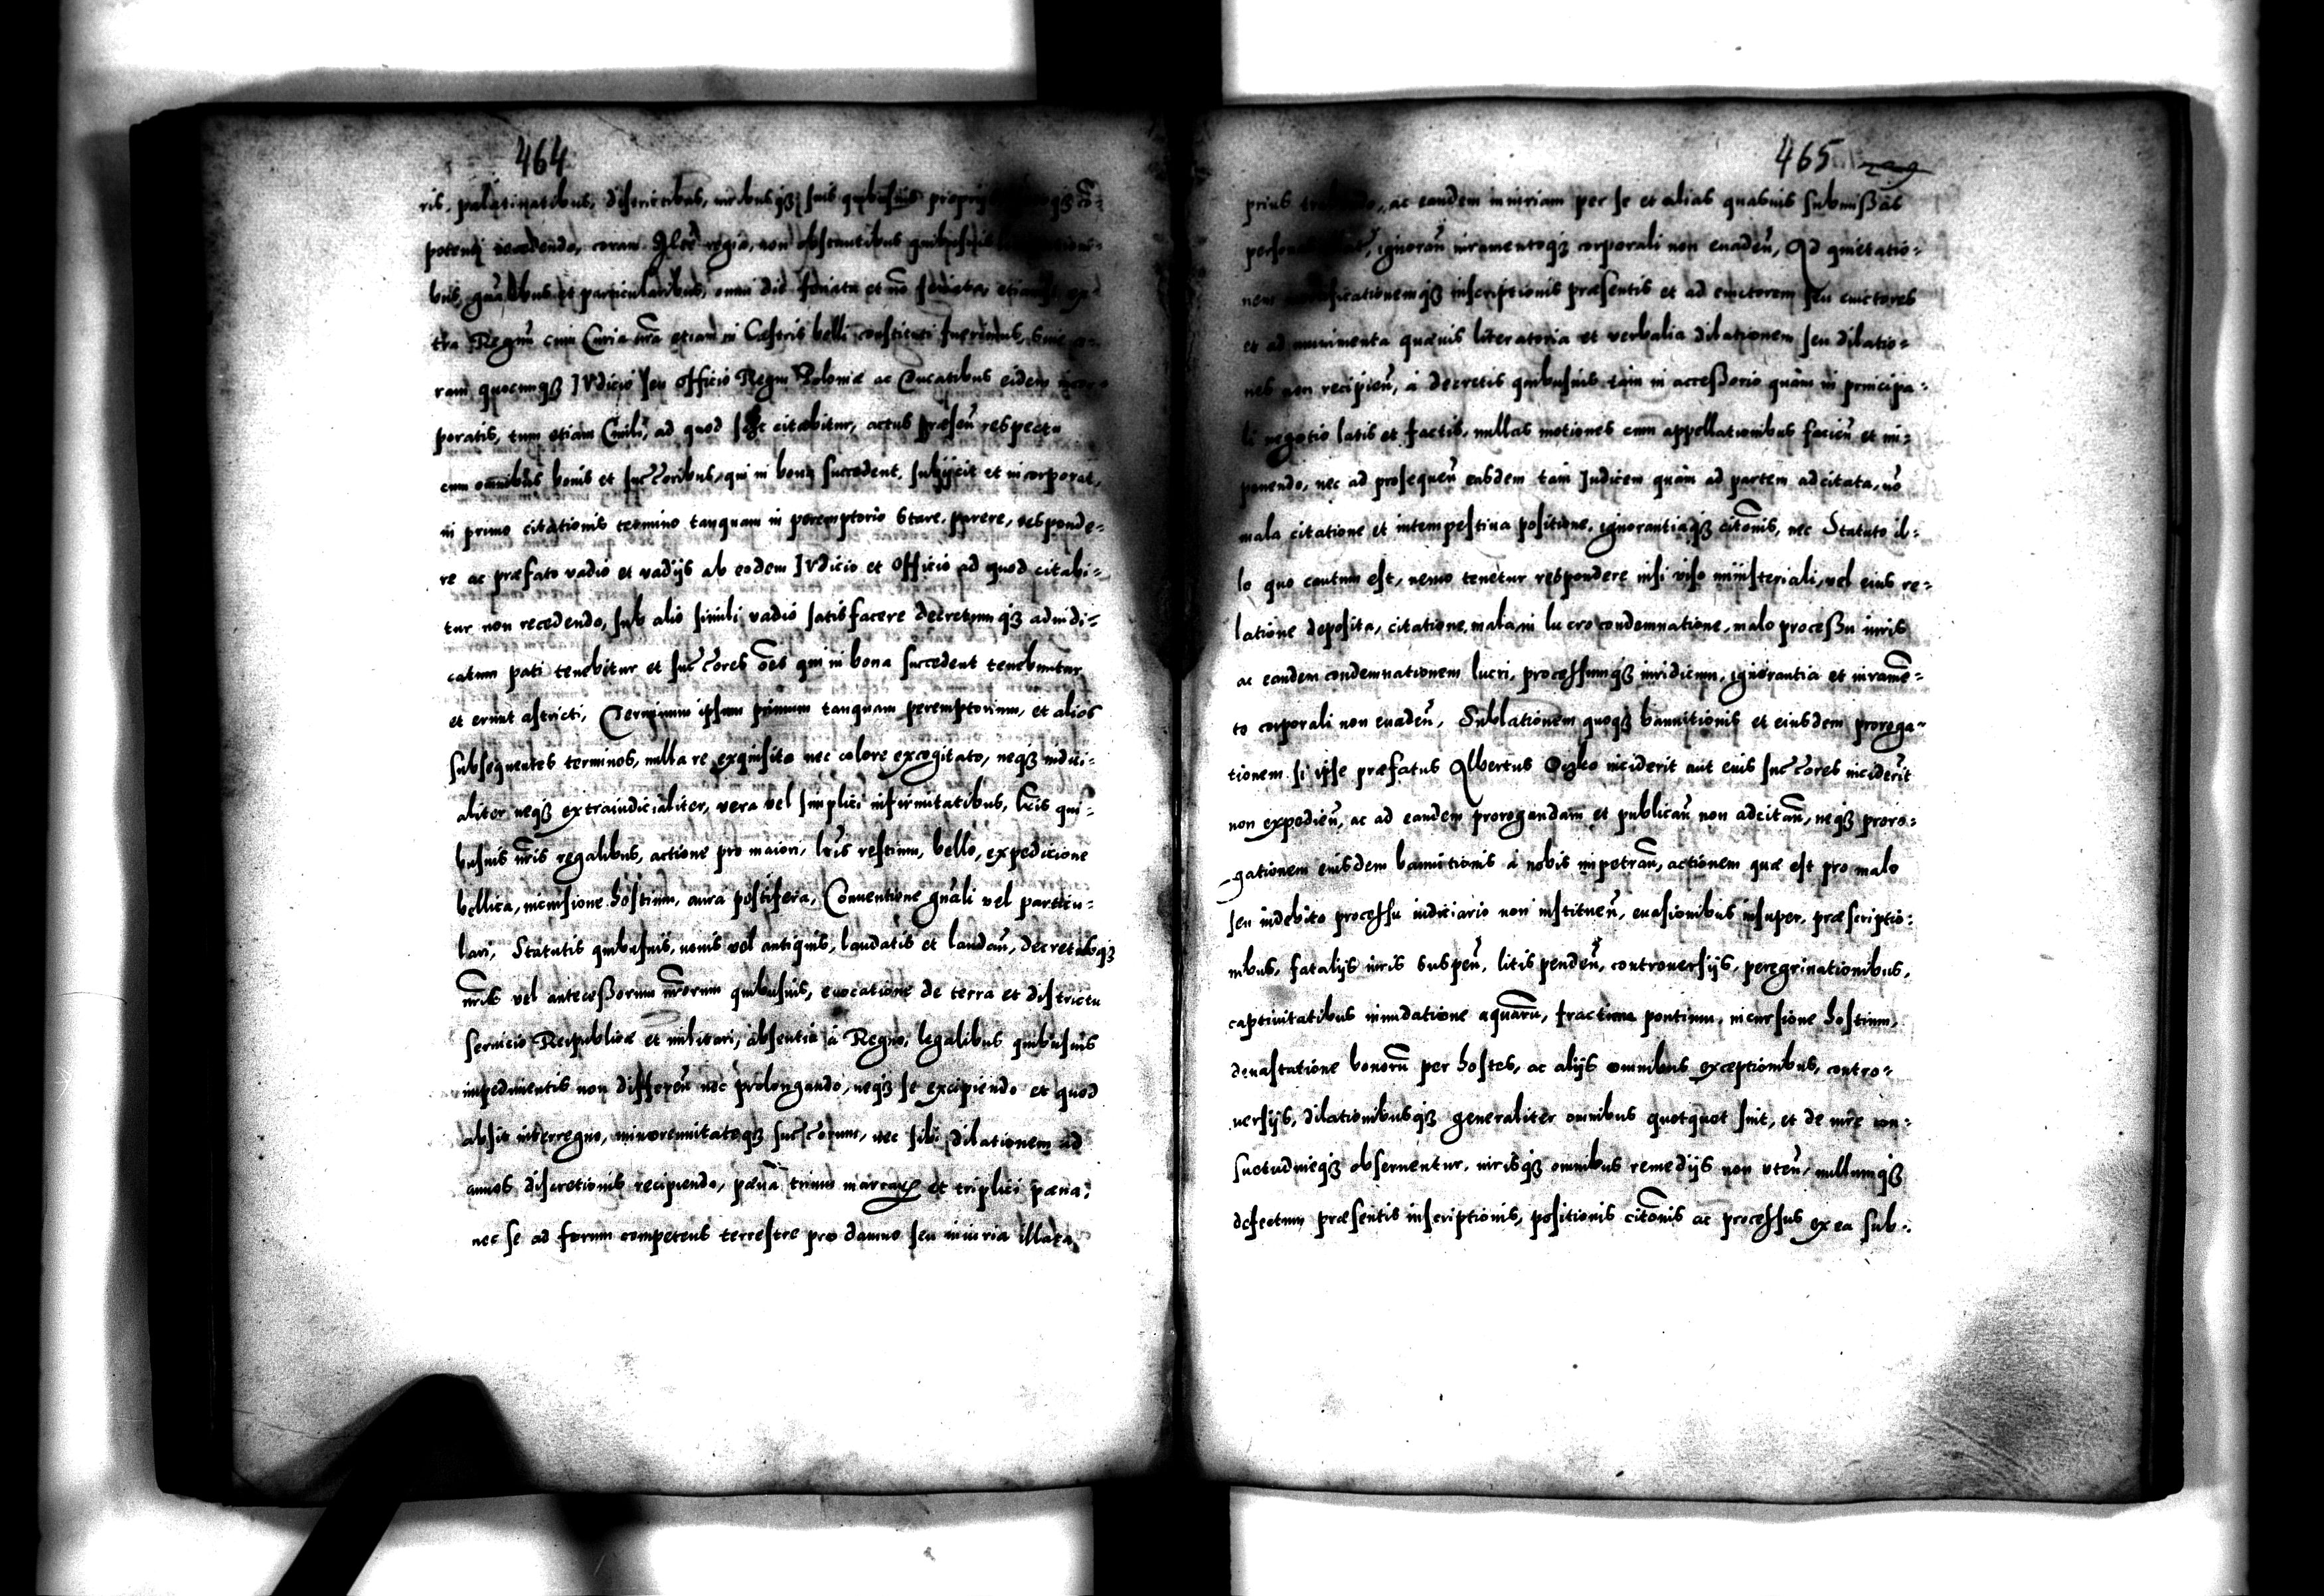 464
ris, palatinatibus, districtibus, iuribusq3 suis quibusuis proprijs
potenti recedendo, coram regia, non obstantibus quibusuis
bus gnalibus et particularibus, omni die feriata et no feriata, etiamsi ex-
tra Regnu cum Curia nra etiam in Castris belli constituti fuerimus, siue co-
ram quocunq3 IVdicio seu Officio Regni Poloniæ ac Ducatibus eidem incor-
poratis, tum etiam Ciuili, ad quod se citabitur, actus præsen respectu
cum omnibus bonis et succoribus, qui in bona succedent, subijcit et incorporat,
in primo citationis termino tanquam in peremptorio stare, parere, responde-
re ac præfato vadio et vadijs ab eodem IVdicio et Officio ad quod citabi-
tur non recedendo, sub alio simili vadio satisfacere decretumq3 adiudi-
catum pati tenebitur et succores oes qui in bona succedent tenebuntur
et erunt astricti, Terminum ipsum primum tanquam peremptorium, et alios
subsequentes terminos, nulla re exquisita nec colore excogitato, neq3 iudici-
aliter neq3 extraiudicialiter, vera vel simplici infirmitatibus, lris qui-
busuis nris regalibus, actione pro maiori, lris restium, bello, expeditione
bellica, incursione hostium, aura pestifera, Conuentione gnali vel particu-
lari, Statutis quibusuis, nouis vel antiquis, laudatis et laudan, decretisq3
nris vel antecessorum nrorum quibusuis, euocatione de terra et districtu
seruicio Reipublicæ et militari, absentia à Regno, legalibus quibusuis
impedimentis non differen nec prolongando, neq3 se excipiendo et quod
absit interregno, minorennitateq3 succorum, nec sibi dilationem ad
annos discretionis recipiendo, pæna trium marcar et triplici pæna,
nec se ad forum competens terrestre pro damno seu iniuria illata
465
prius ac eandem iniuriam per se et alias quasuis submissas
ignoran iuramentoq3 corporali non euaden, Ad quietatio-
nem inscriptionis præsentis et ad euictorem seu euictores
et ad munimenta quæuis literatoria et verbalia dilationem seu dilatio-
nes non recipien, à decretis quibusuis tam in accessorio quàm in principa-
li negotio latis et factis, nullas motiones cum appellationibus facien et in-
ponendo, nec ad prosequen easdem tam Iudicem quàm ad partem adcitata, no
mala citatione et intempestiua positione, ignorantiaq3 citonis, nec Statuto il-
lo quo cautum est, nemo tenetur respondere nisi viso ministeriali, vel eius re-
latione deposita, citatione mala, in lucro condemnatione, malo processu iuris
ac eandem condemnationem lucri, processumq3 iuridicum, ignorantia et iurame-
to corporali non euaden, Sublationem quoq3 bannitionis et eiusdem proroga-
tionem si ipse præfatus Albertus inciderit aut eius succores inciderit
non expedien, ac ad eandem prorogandam et publican non adcitan, neq3 proro-
gationem eiusdem bannitionis à nobis impetran, actionem quæ est pro malo
seu indebito processu iudiciario non instituen, euasionibus insuper, præscriptio-
nibus, fatalijs iuris suspen, litis penden, controuersijs, peregrinationibus,
captiuitatibus inundatione aquaru, fractione pontium, incursione hostium,
deuastatione bonoru per hostes, ac alijs omnibus exceptionibus, contro-
uersijs, dilationibusq3 generaliter omnibus quotquot sint, et de iure con-
suetudineq3 obseruentur, iurisq3 omnibus remedijs non vten, nullumq3
defectum præsentis inscriptionis, positionis citonis ac processus ex ea sub-